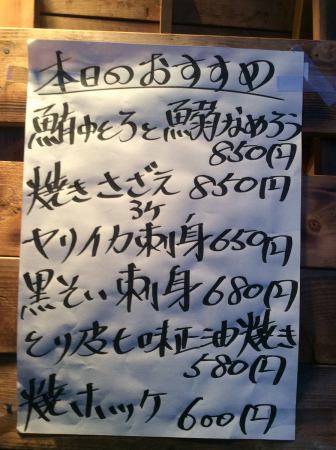 本日のおすすめ
鮪中とろと鰯なめろう
850円
焼きさざえ 850円
3ケ
ヤリイカ刺身 650円
黒そい刺身 680円
とり皮七味正油焼き
580円
焼ホッケ 600円